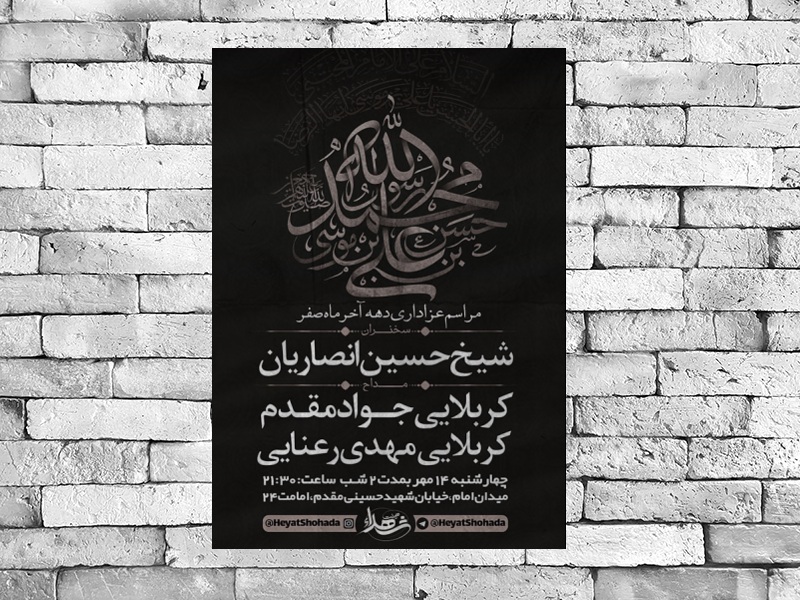 محمد رسول الله
حسن بن علی
بن موسی
مراسم عزاداری دهه آخر ماه صفر
سخنران
شیخ حسین انصاریان
مداح
کربلایی جواد مقدم
کربلایی مهدی رعنایی
چهارشنبه ۱۴ مهر بمدت ۲ شب ساعت: ۲۱:۳۰
میدان امام، خیابان شهید حسینی مقدم، امامت ۲۴
@HeyatShohada شهدا @HeyatShohada